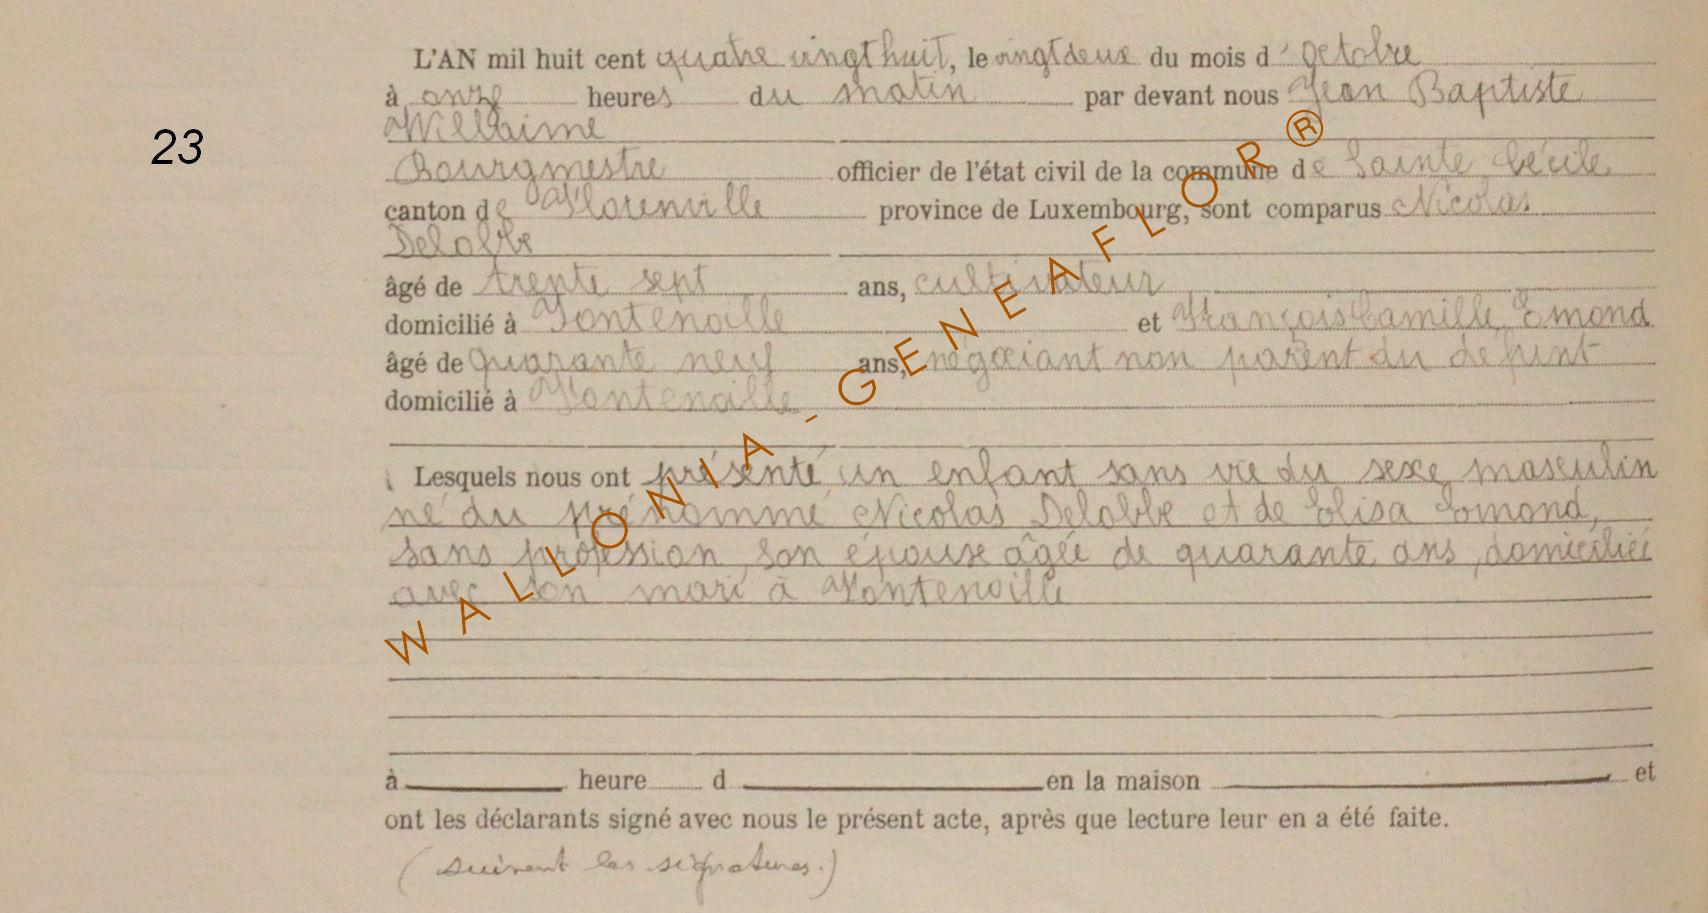 L'AN mil huit cent quatre vingt huit, le vingtdeux du mois d'octobre
à onze heures du matin par devant nous Jean Baptiste
Willaime
23
Bourgmestre officier de l'état civil de la commune de Sainte Cécile
canton de Florenville province de Luxembourg, sont comparus Nicolas
Delobbe
âgé de trente sept ans, cultivateur
domicilié à Fontenoille et François Camille Emond
âgé de quarante neuf ans, négociant non parent du défunt
domicilié à Fontenoille
Lesquels nous ont présenté un enfant sans vie du sexe masculin
né du prénommé Nicolas Delobbe et de Elisa Emond,
sans profession, son épouse âgée de quarante ans, domiciliée
avec son mari à Fontenoille
à heure d en la maison et
ont les déclarants signé avec nous le présent acte, après que lecture leur en a été faite.
(suivent les signatures.)
WALLONIA-GENEAFLOR®